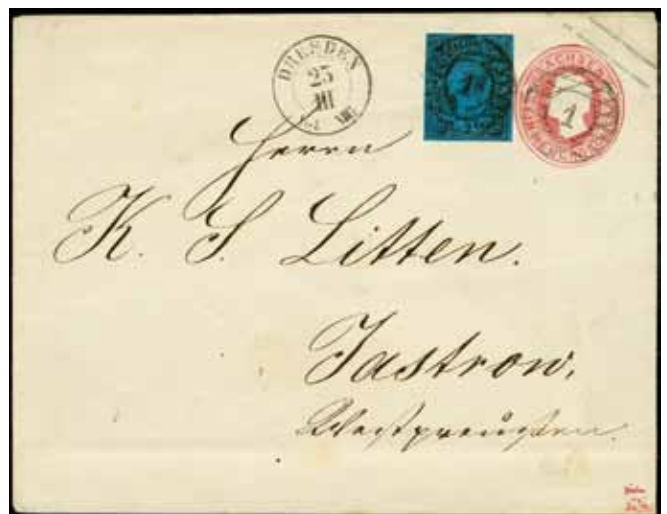 DRESDEN
25
III
SACHSEN
1
Herrn
K. S. Litten.
Jastrow,
Westpreußen.